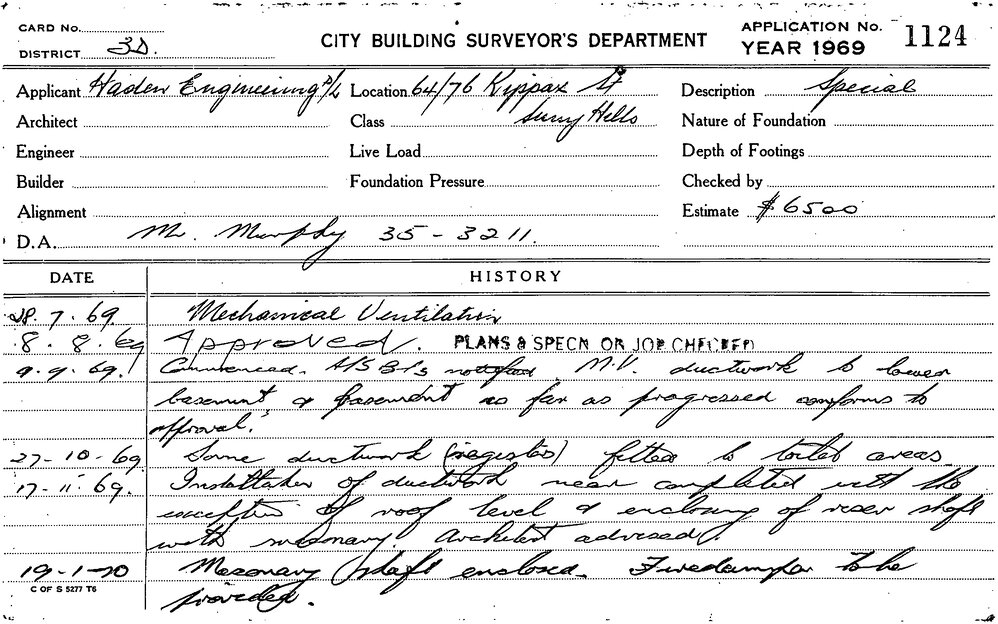 CARD No.
DISTRICT 3D.
CITY BUILDING SURVEYOR'S DEPARTMENT
APPLICATION No. 1124
YEAR 1969
Applicant Haden Engineering P/L Location 64/76 Kippax St Description Special
Architect Class Surry Hills Nature of Foundation
Engineer Live Load Depth of Footings
Builder Foundation Pressure Checked by
Alignment Estimate $6500
D.A. Mr. Murphy 35-3211.
DATE HISTORY
28.7.69. Mechanical Ventilation
8.8.69 Approved. PLANS & SPECN OR JOB CHECKED
9.9.69. Commenced. M.V. ductwork to lower
basement & basement as far as progressed conforms to
approval.
27-10-69 Some ductwork (registers) fitted to toilet areas
17-11-69. Installation of ductwork near completed with the
exception of roof level & enclosing of riser shaft
with masonary. Architect advised.
19-1-70 Masonary shaft enclosed. Firedamper to be
provided.
C OF S 5277 T6